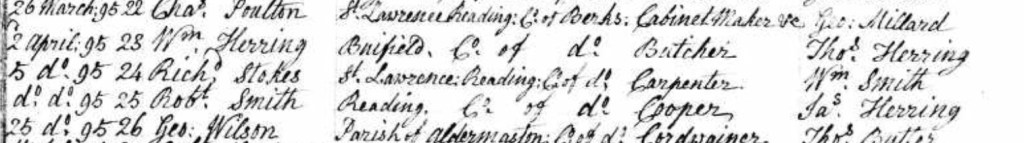 26 March: 95 22 Chas. Poulton St. Lawrence Reading: Co. of Berks: Cabinet Maker &c Geo: Millard
2 April: 95 23 Wm. Herring Co. of do. Butcher Thos. Herring
5 do. 95 24 Richd. Stokes St. Lawrence: Reading: Co. of do. Carpenter Wm. Smith
do. do. 95 25 Robt. Smith Reading. Co. of do. Cooper Jas. Herring
25 do. 95 26 Geo: Wilson Parish of Aldermaston: Co. of do. Cordwainer Thos. Butler